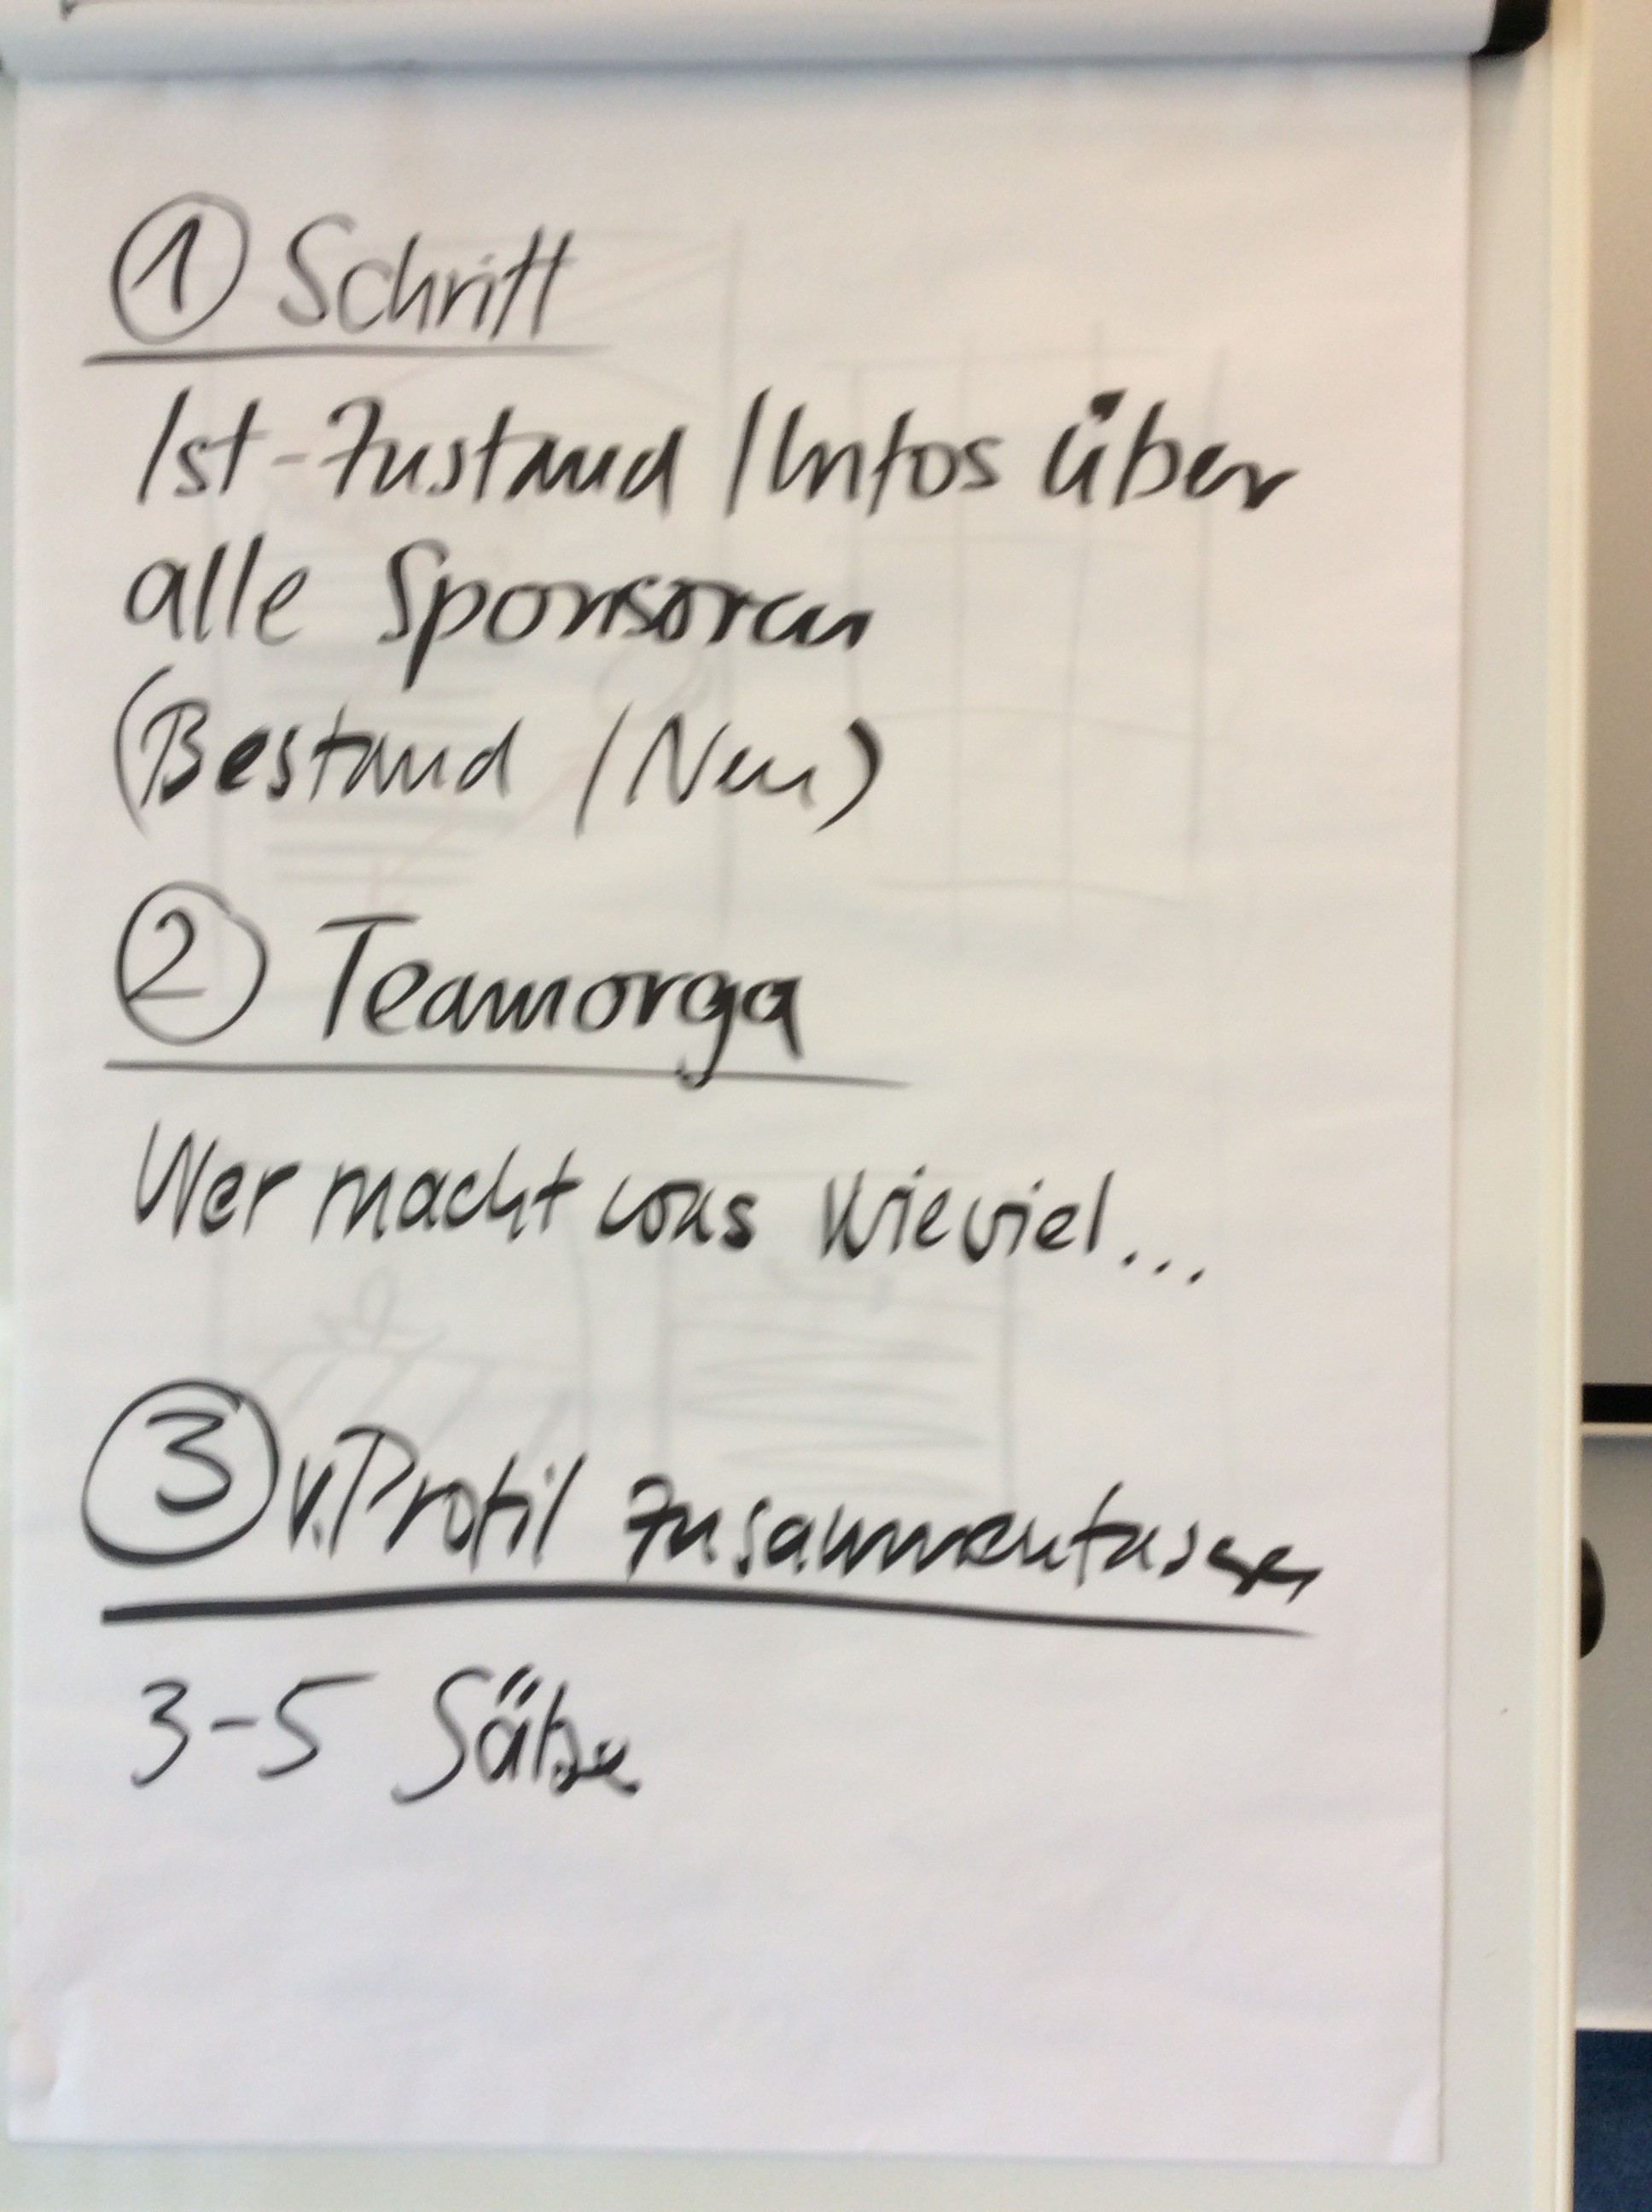 ① Schritt
Ist-Zustand / Infos über
alle Sponsoren
(Bestand / Neu)
② Teamorga
Wer macht was wieviel...
③ v. Profil zusammenfassen
3-5 Sätze